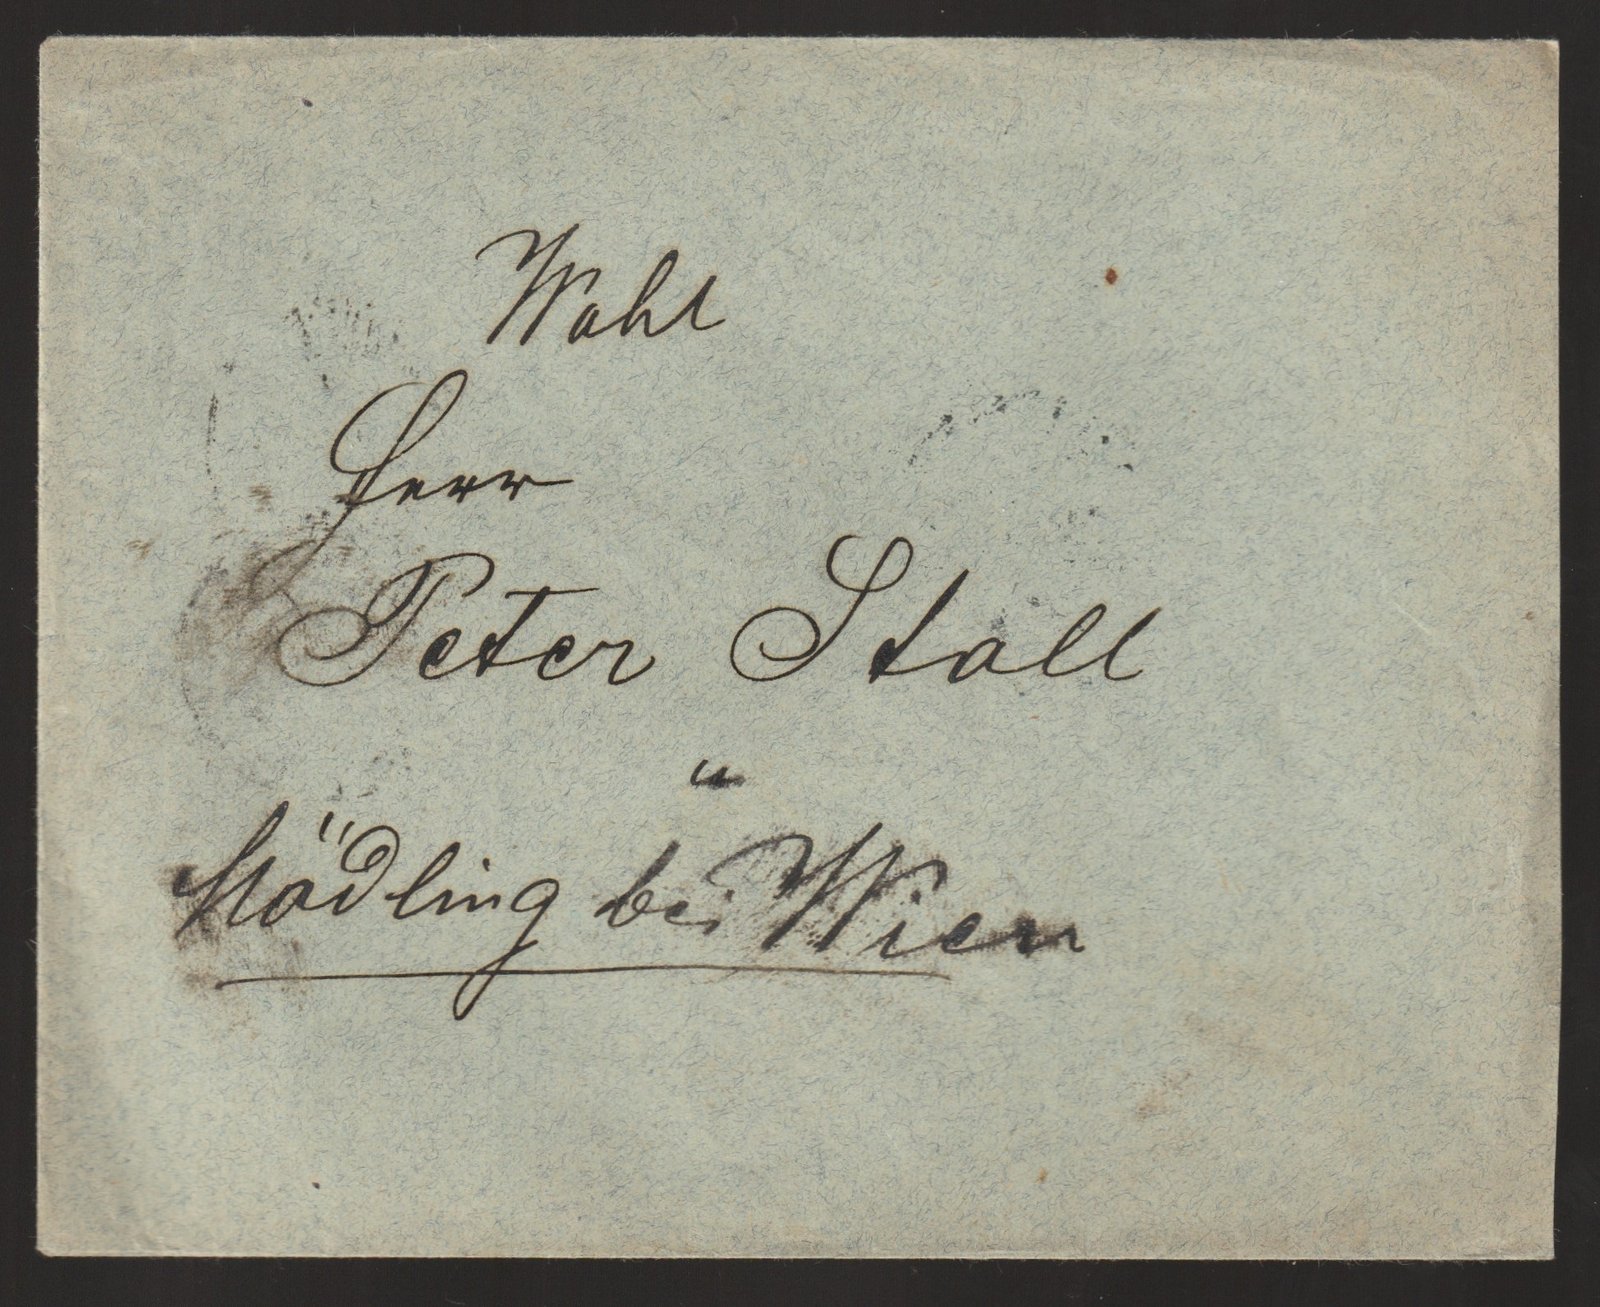 Wohl
Herr
Peter Stoll
Mödling bei Wien